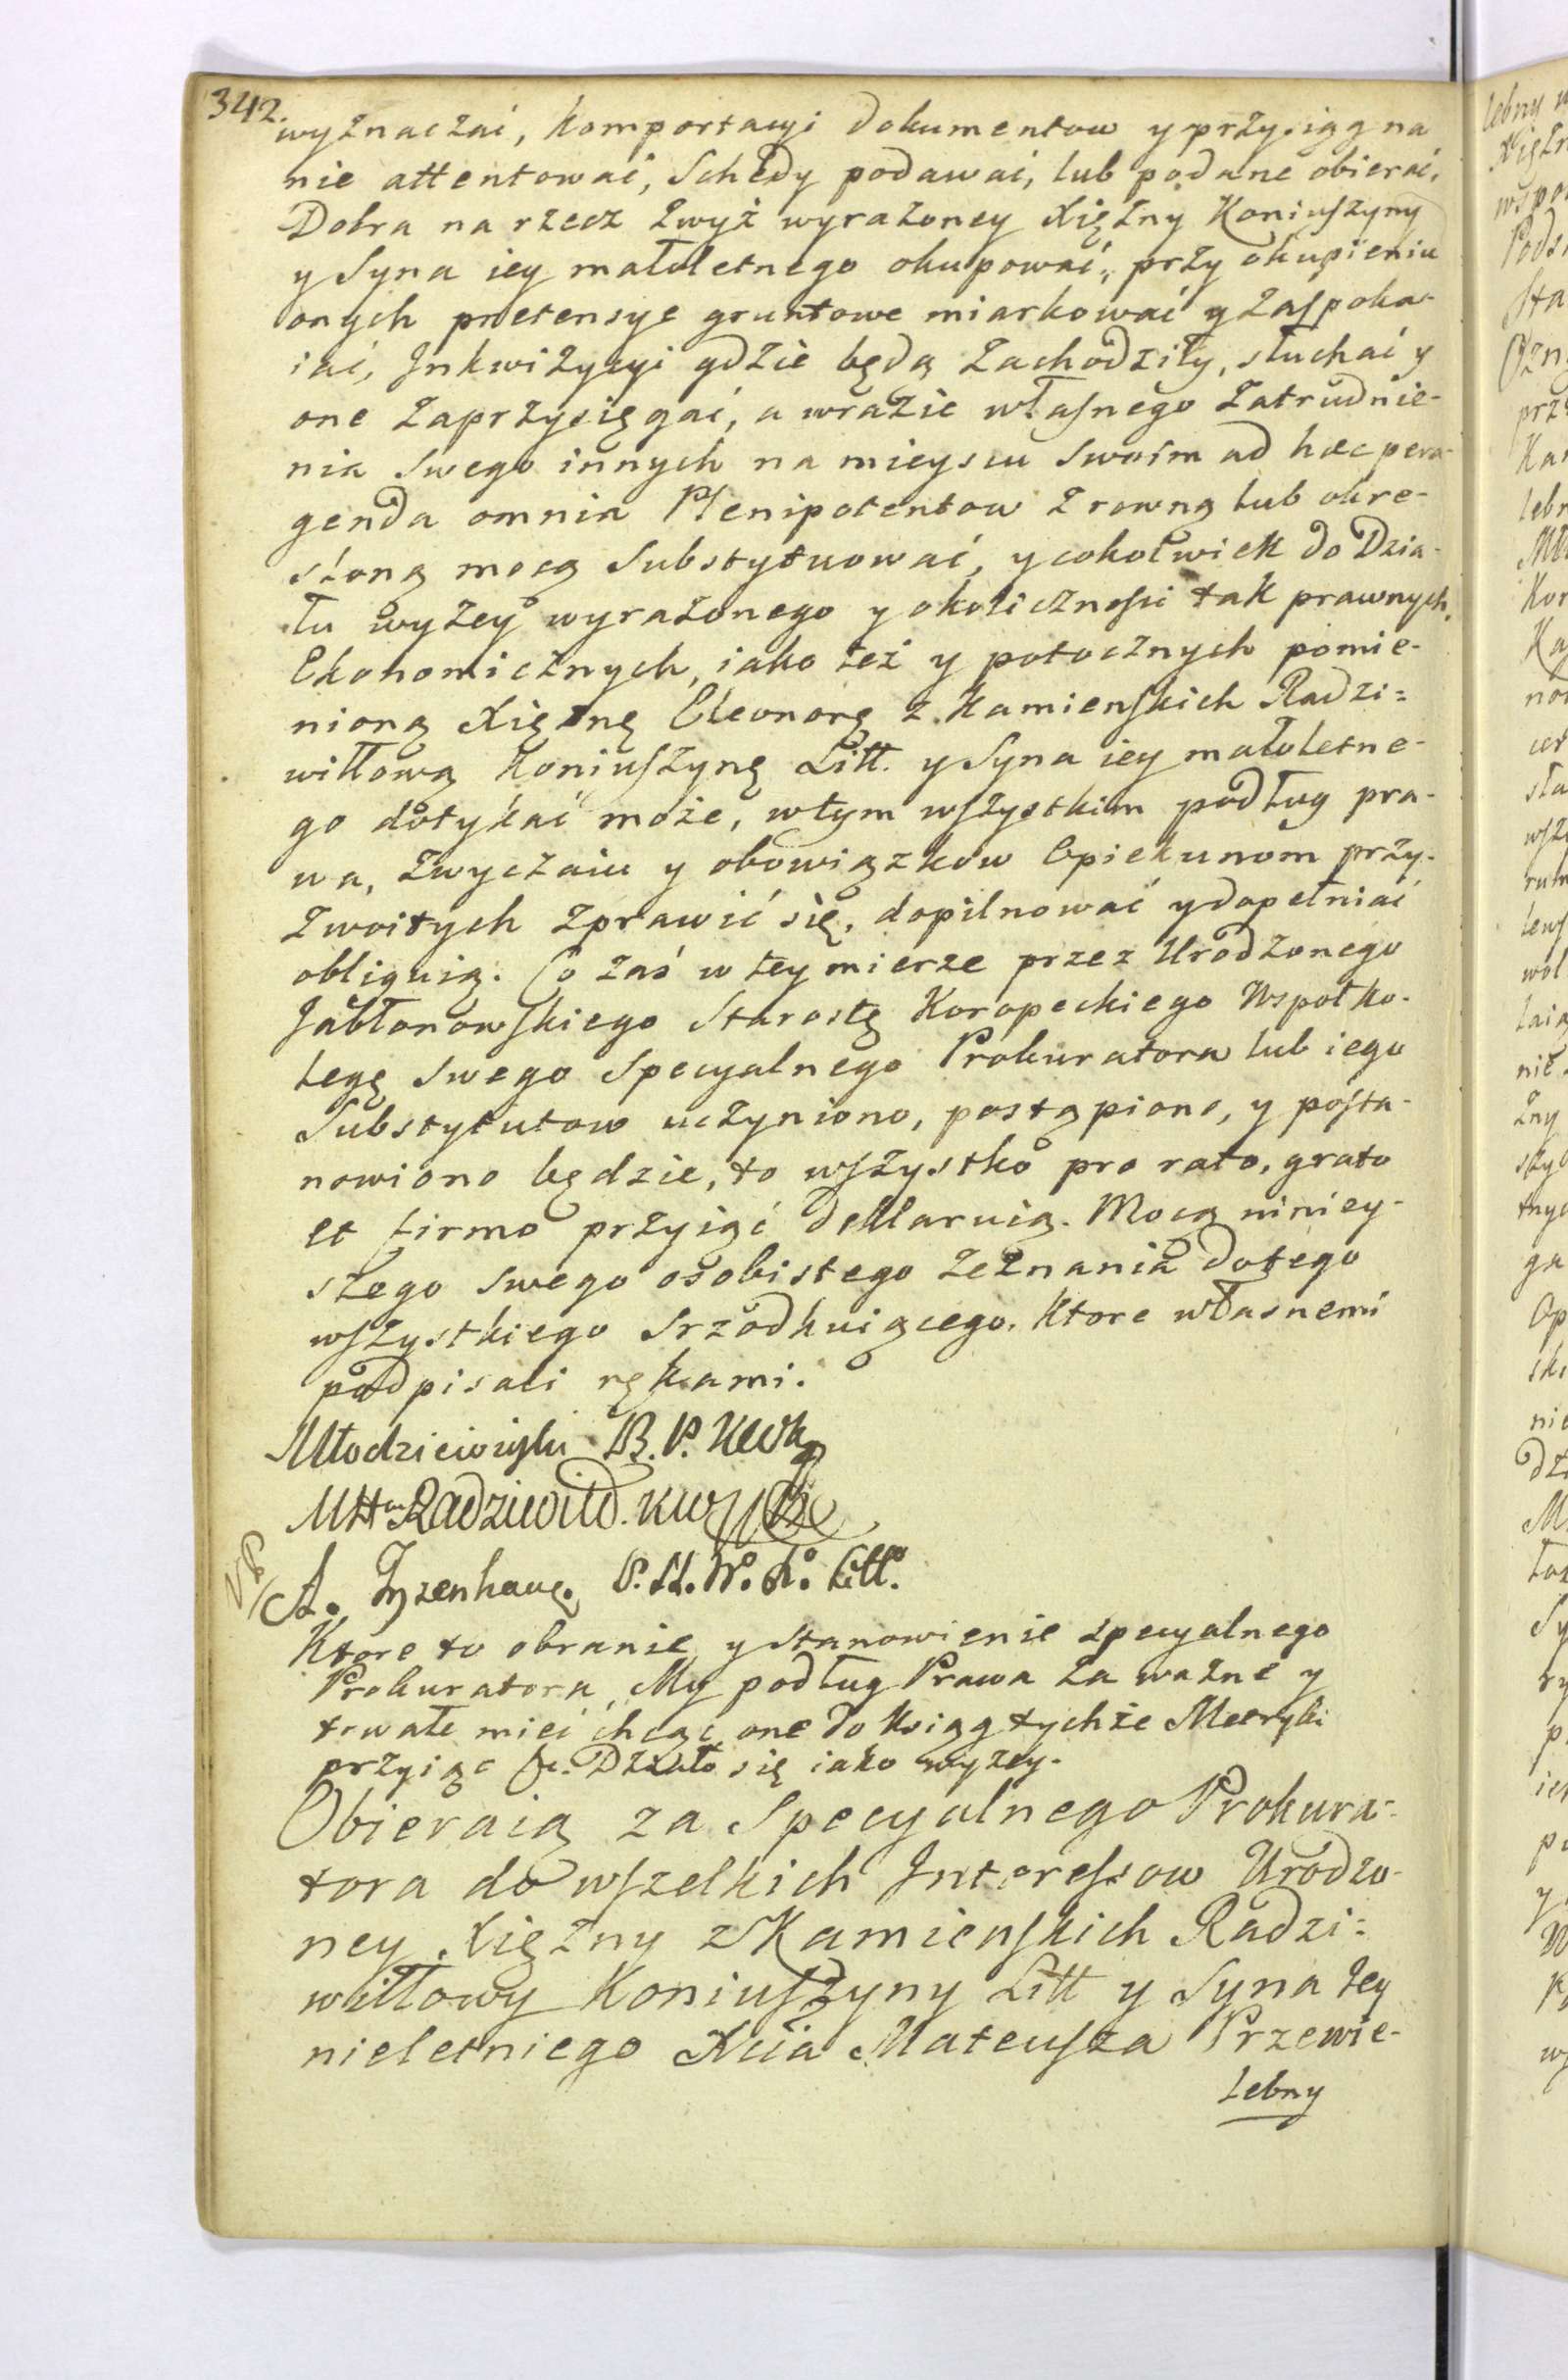 342.
wyznaczać, komportacyi dokumentow y przysiąg na
nie attentować, Schedy podawać, lub podane obierać,
Dobra na rzecz zwyż wyrażoney Xiężny Koniuszyny
y Syna iey małoletnego okupować, przy okupieniu
onych pretensye gruntowe miarkować y zaspoka-
iać, Jnkwizycyi gdzie będą zachodziły, słuchać y
one zaprzysięgać, a wrazie własnego zatrudnie-
nia swego innych na mieyscu swoim ad hæc pera-
genda omnia Plenipotentow z rowną lub okre-
słoną mocą Substytuować, y cokolwiek do Dzia-
łu wyżey wyrażonego y okolicznosci tak prawnych,
Ekonomicznych, iako też y potocznych pomie-
nioną Xiężnę Eleonorę z Kamienskich Radzi=
wiłłową Koniuszynę Litt. y Syna iey małoletne-
go dotykać może, w tym wszystkim podług pra-
wa, zwyczaiu y obowiązkow Opiekunom przy-
zwoitych zprawić się, dopilnować y dopełniać
obliguią. Co zaś w tey mierze przez Urodzonego
Jabłonowskiego Starostę Koropeckiego Wspołko-
legę swego Specyalnego Prokuratora lub iego
Substytutow uczyniono, postąpiono, y posta-
nowiono będzie, to wszystko pro rato, grato
et firmo przyiąć deklaruią. Mocą niniey-
szego swego osobistego zeznania do tego
wszystkiego srzodkuiącego. Ktore własnemi
podpisali rękami.
Młodzieiowski B. P.
Radziwiłł. KW
A. Tyzenhauz. P. N. W. X. Litt.
Ktore to obranie y stanowienie specyalnego
Prokuratora, My podług Prawa za ważne y
trwałe mieć chcąc, one do ksiąg tychże Metryki
przyiąc &c. Działo się iako wyzey.
Obieraią za Specyalnego Prokura-
tora do wszelkich Jnteressow Urodzo-
ney Xiężny z Kamienskich Radzi=
wiłłowy Koniuszyny Litt y Syna Jey
nieletniego Xcia Mateusza Przewie-
lebny